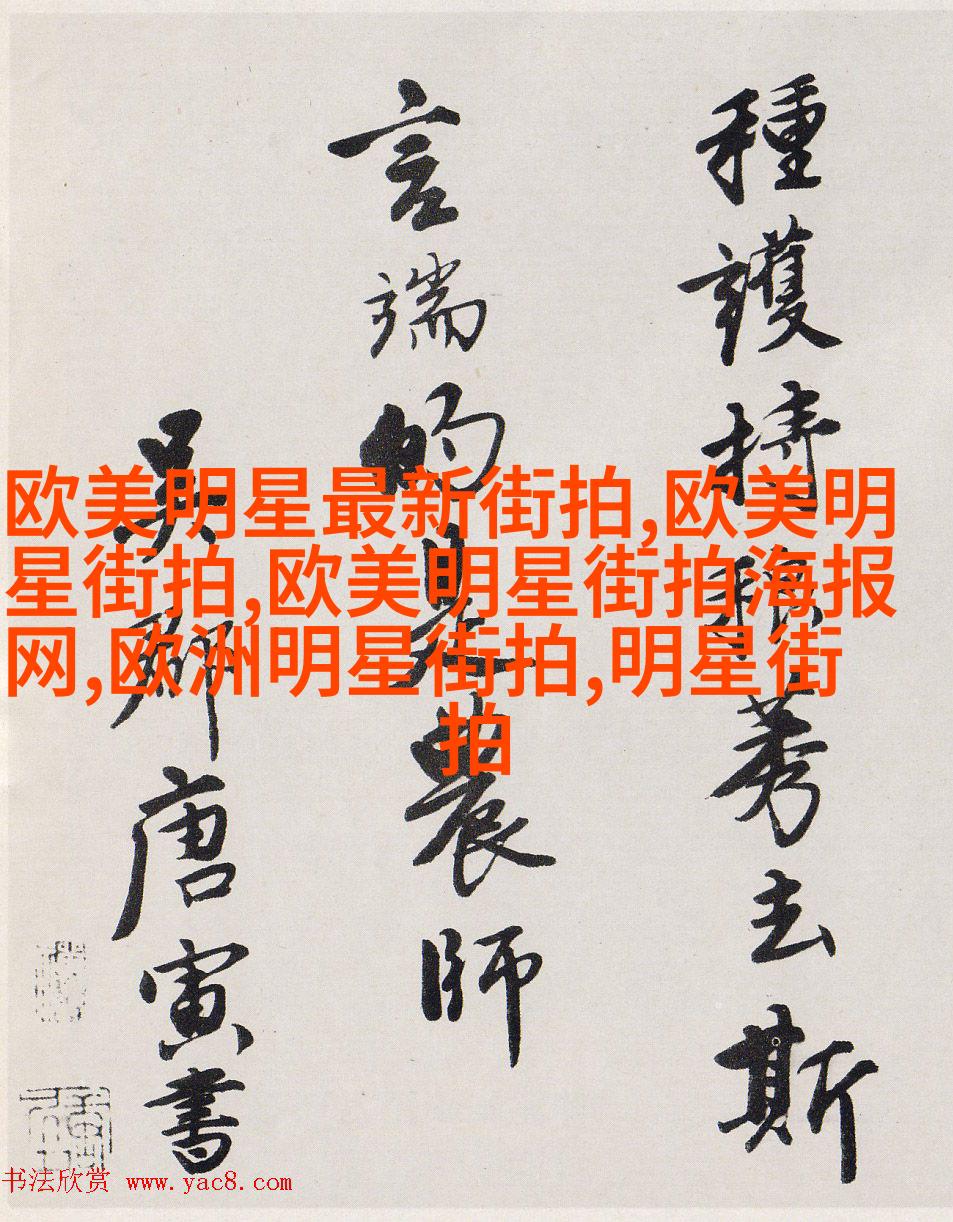 種護持稂莠去斯
言端的是農師
吳郡唐寅書
欧美明星最新街拍,欧美明
星街拍,欧美明星街拍海报
网,欧洲明星街拍,明星街
拍
书法欣赏 www.yac8.com